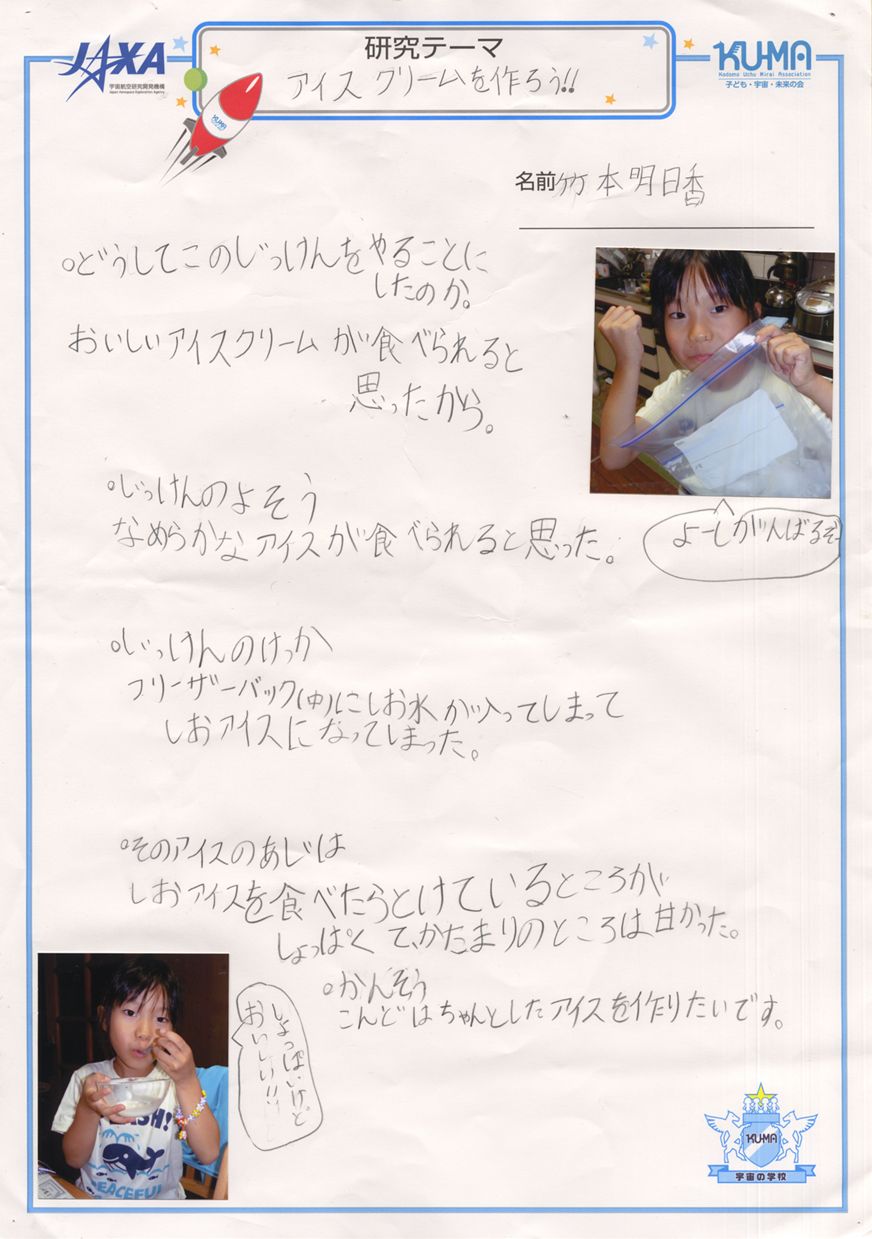 JAXA
宇宙航空研究開発機構
Japan Aerospace Exploration Agency
研究テーマ
アイスクリームを作ろう!!
KU-MA
Kodomo Uchu Mirai Association
子ども・宇宙・未来の会
KU-MA
名前 竹本明日香
どうしてこのじっけんをやることに
したのか。
おいしいアイスクリームが食べられると
思ったから。
じっけんのよそう
なめらかなアイスが食べられると思った。
よーしがんばるぞ
じっけんのけっか
フリーザーバック(中)にしお水が入ってしまって
しおアイスになってしまった。
そのアイスのあじは
しおアイスを食べたらとけているところが
しょっぱくて、かたまりのところは甘かった。
かんそう
こんどはちゃんとしたアイスを作りたいです。
しょっぱいけど
おいしい!!
PEACEFUL
KU-MA
宇宙の学校